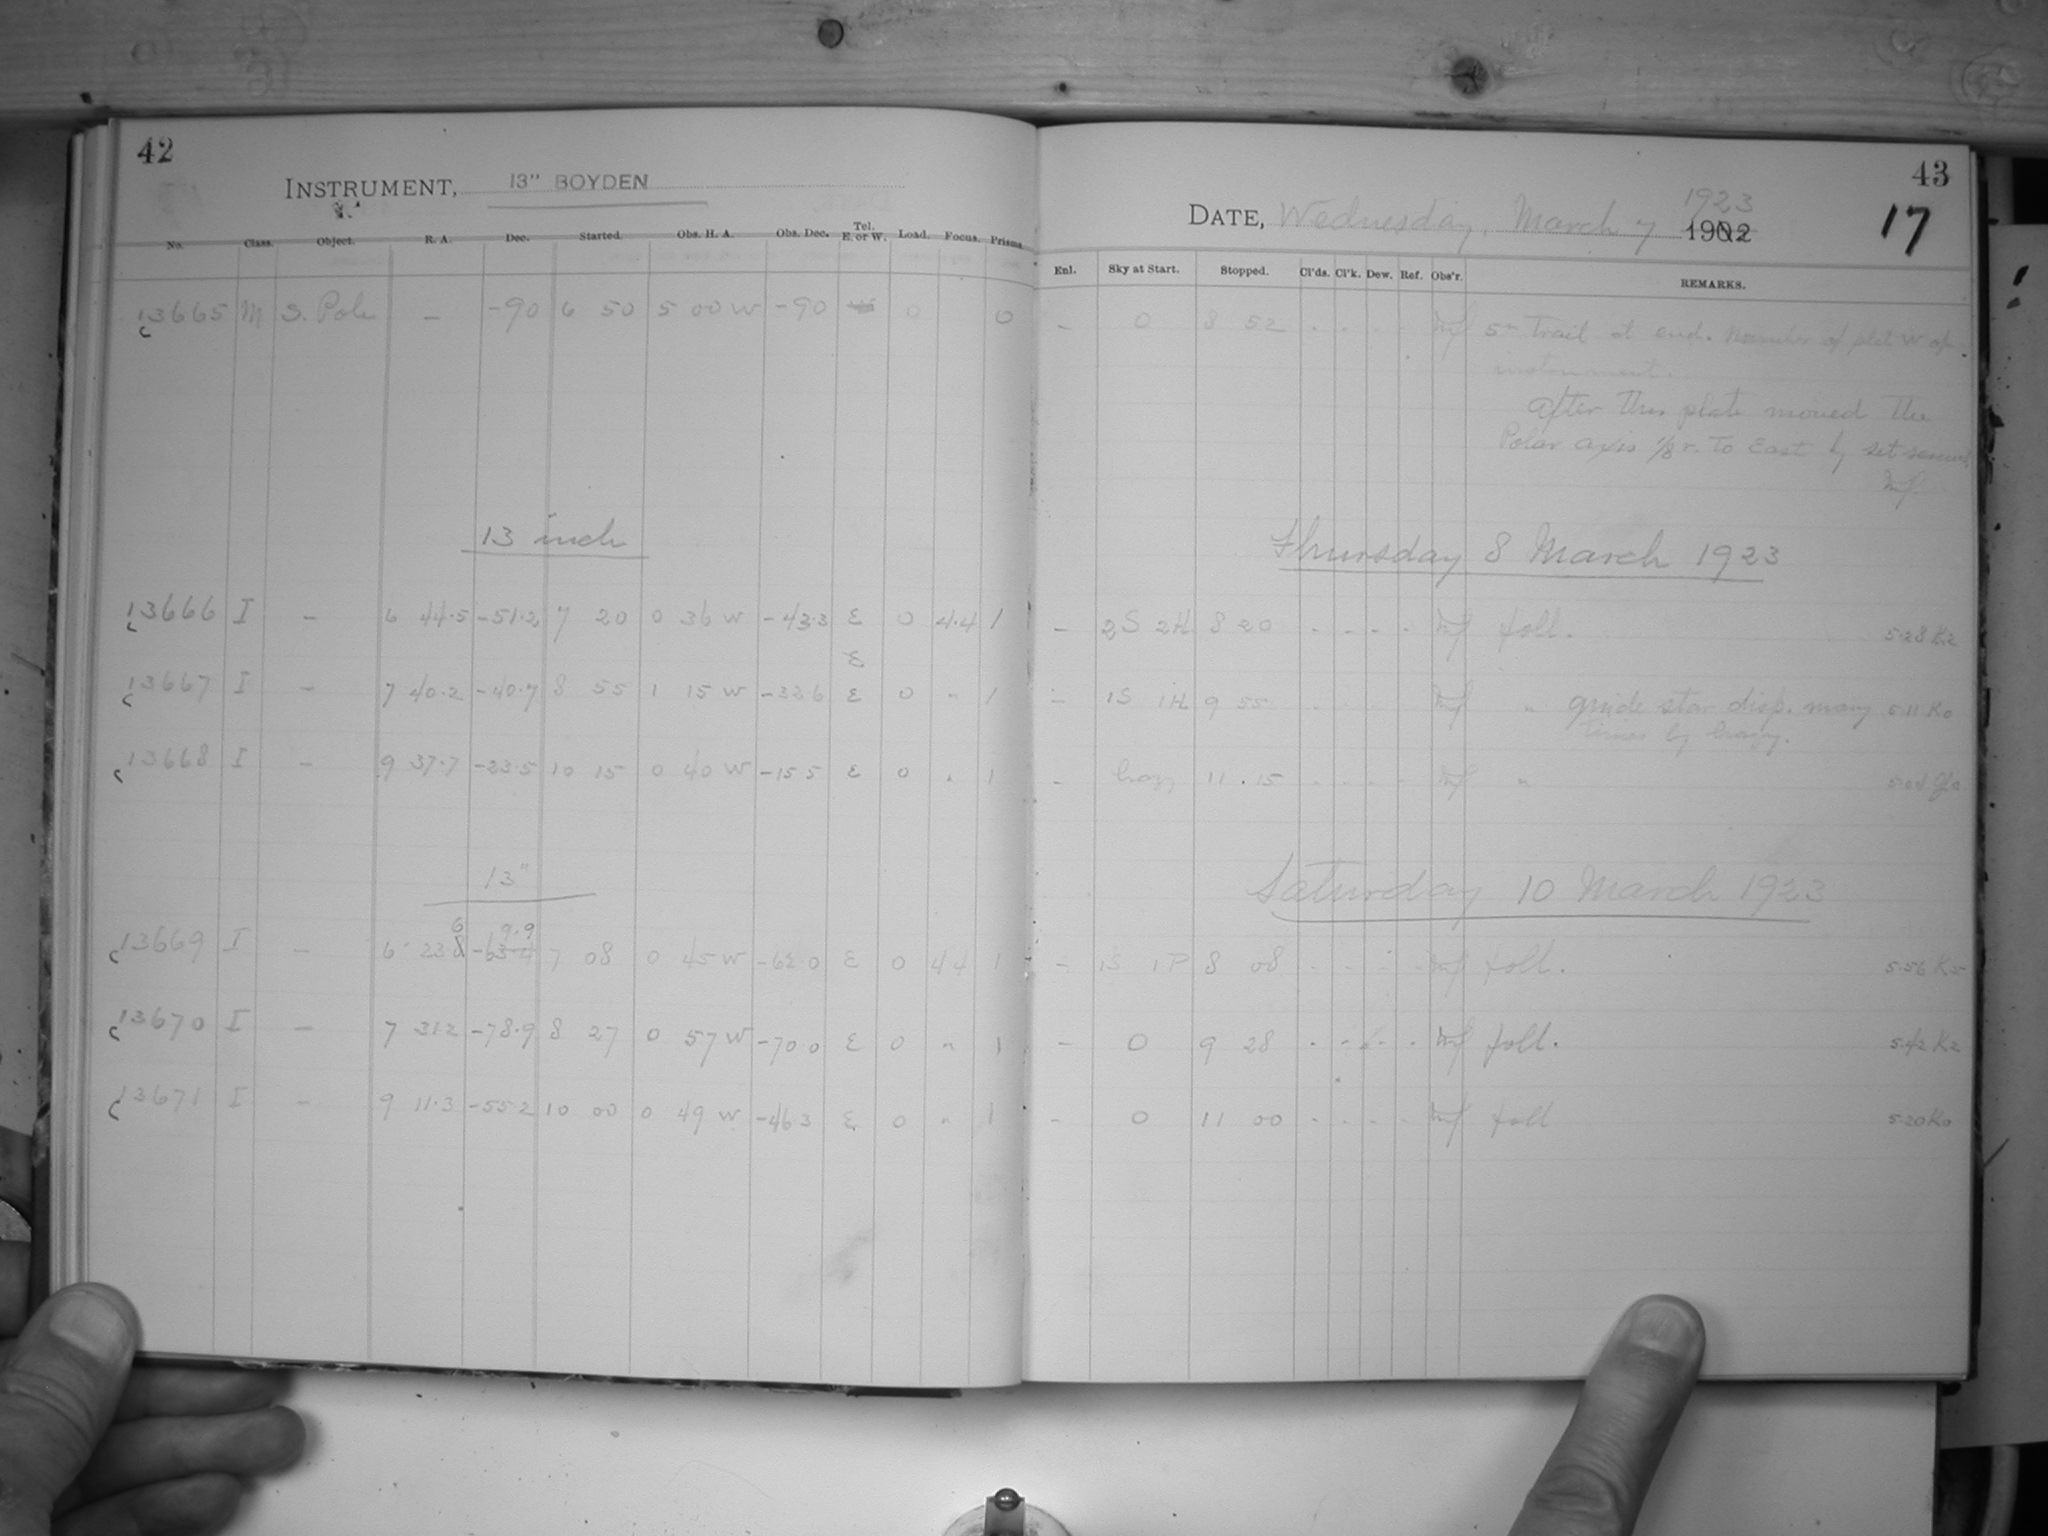 42
INSTRUMENT, 13" BOYDEN
No. Class. Object. R. A. Dec. Started. Obs. H. A. Obs. Dec. Tel. E. or W. Load. Focus. Prisms.
13665 M S. Pole – -90 6 50 5 00 W -90 0 0
13 inch
13666 I – 6 44.5 -51.2 7 20 0 36 W -43.3 E 0 4.4 1
E
13667 I – 7 40.2 -40.7 8 55 1 15 W -32.6 E 0 " 1
13668 I – 9 37.7 -23.5 10 15 0 40 W -15.5 E 0 " 1
13"
6 9.9
13669 I – 6 23.8 -63.4 7 08 0 45 W -62.0 E 0 4.4 1
13670 I – 7 31.2 -78.9 8 27 0 57 W -70.0 E 0 " 1
13671 I – 9 11.3 -55.2 10 00 0 49 W -46.3 E 0 " 1
43
17
1923
DATE, Wednesday, March 7 1902
Enl. Sky at Start. Stopped. Cl'ds. Cl'k. Dew. Ref. Obs'r. REMARKS.
– 0 8 52 . . . . 5m Trail at end. Number of plate W of
instrument.
After this plate moved the
Polar axis 1/8 r. To East by set screws
Thursday 8 March 1923
– 2S 2H 8 20 . . . . foll. 5.28 K2
– 1S 1H 9 55 . . . . " guide star disp. many 5.11 K0
times by hazy.
– hazy 11.15 . . . . "
Saturday 10 March 1923
– 1S 1P 8 08 . . . . foll. 5.56 K5
– 0 9 28 . . . . foll. 5.42 K2
– 0 11 00 . . . . foll 5.20 K0